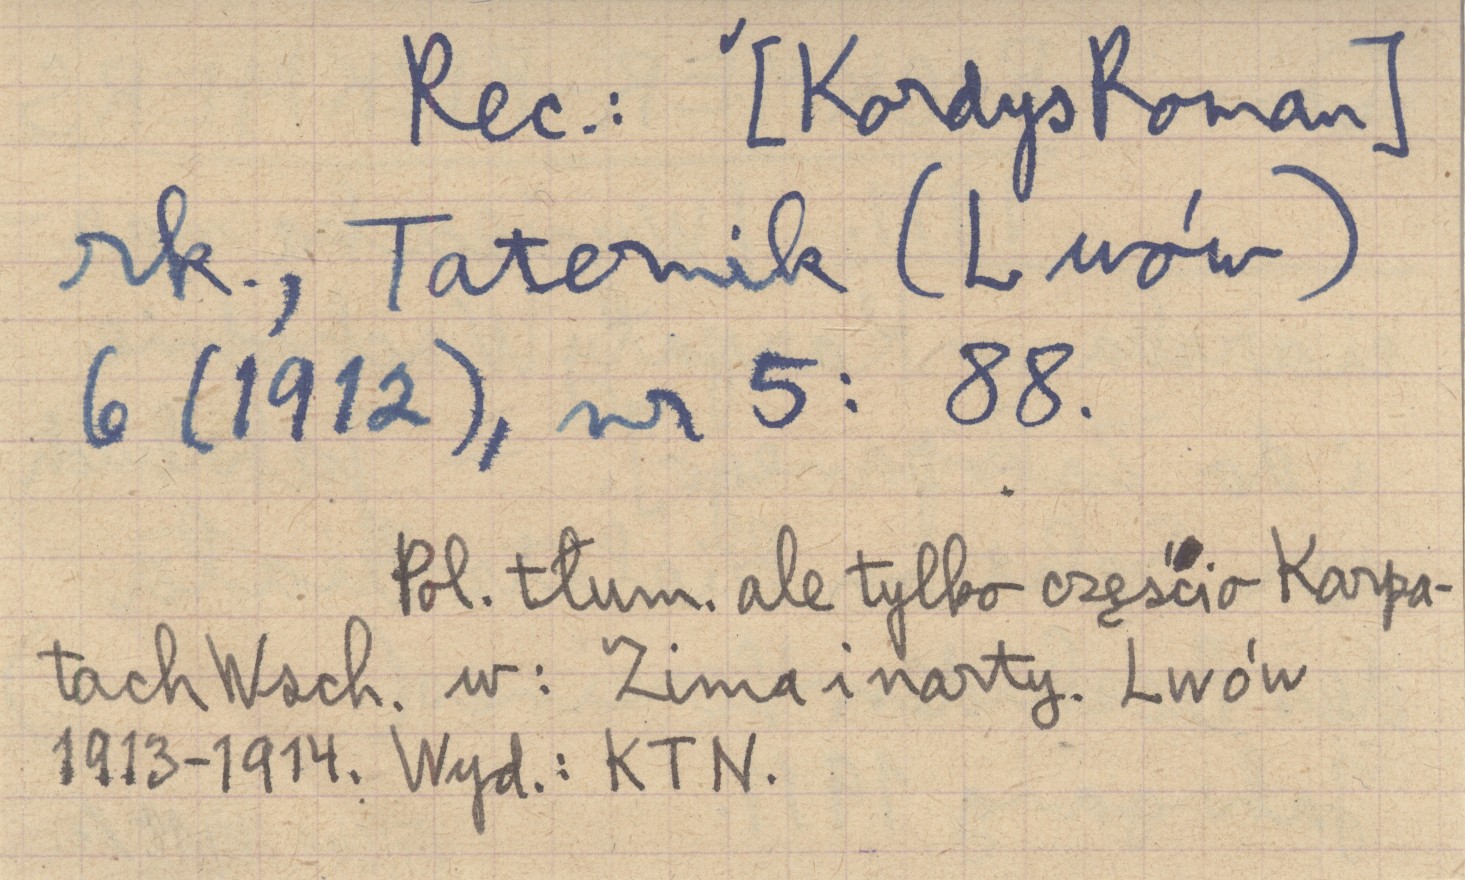 Rec.: [Kordys Roman]
rk., Taternik (Lwów)
6 (1912), nr 5: 88.
Pol. tłum. ale tylko część o Karpa-
tach Wsch. w: Zima i narty. Lwów
1913-1914. Wyd.: KTN.